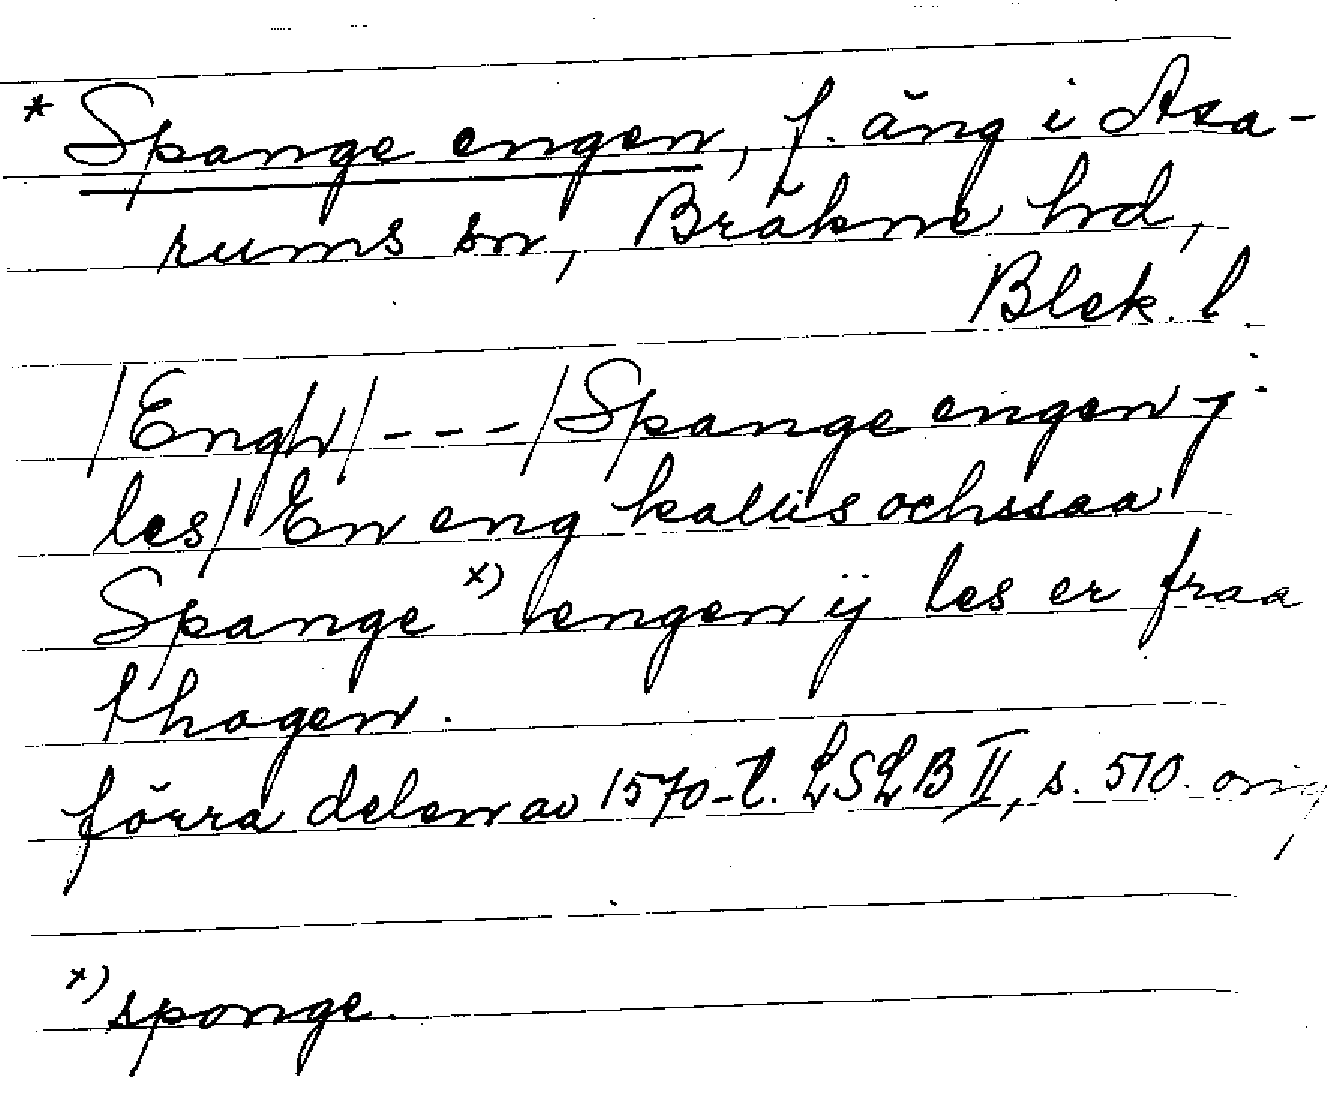 * Spange engen, f. äng i Asa-
rums sn, Bräkne hd,
Blek. l.
/Engh/ - - - /Spange engen ÿ
les/ En eng kallis ochssaa
Spange x) engen ÿ les er fraa
thagen.
förra delen av 1570-t. LSLB II, s. 510. orig
x) sponge.